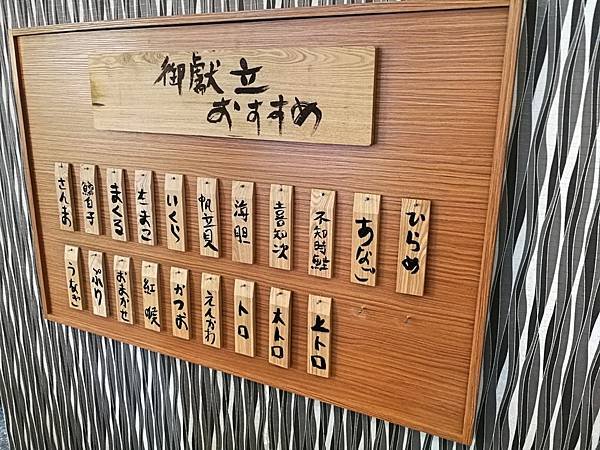 御獻立
おすすめ
ひらめ
あなご
不知時鮭
喜知次
海胆
帆立貝
いくら
たまご
まぐろ
鱈白子
さんま
上トロ
大トロ
トロ
えんがわ
かつお
紅喉
おまかせ
ぶり
うなぎ